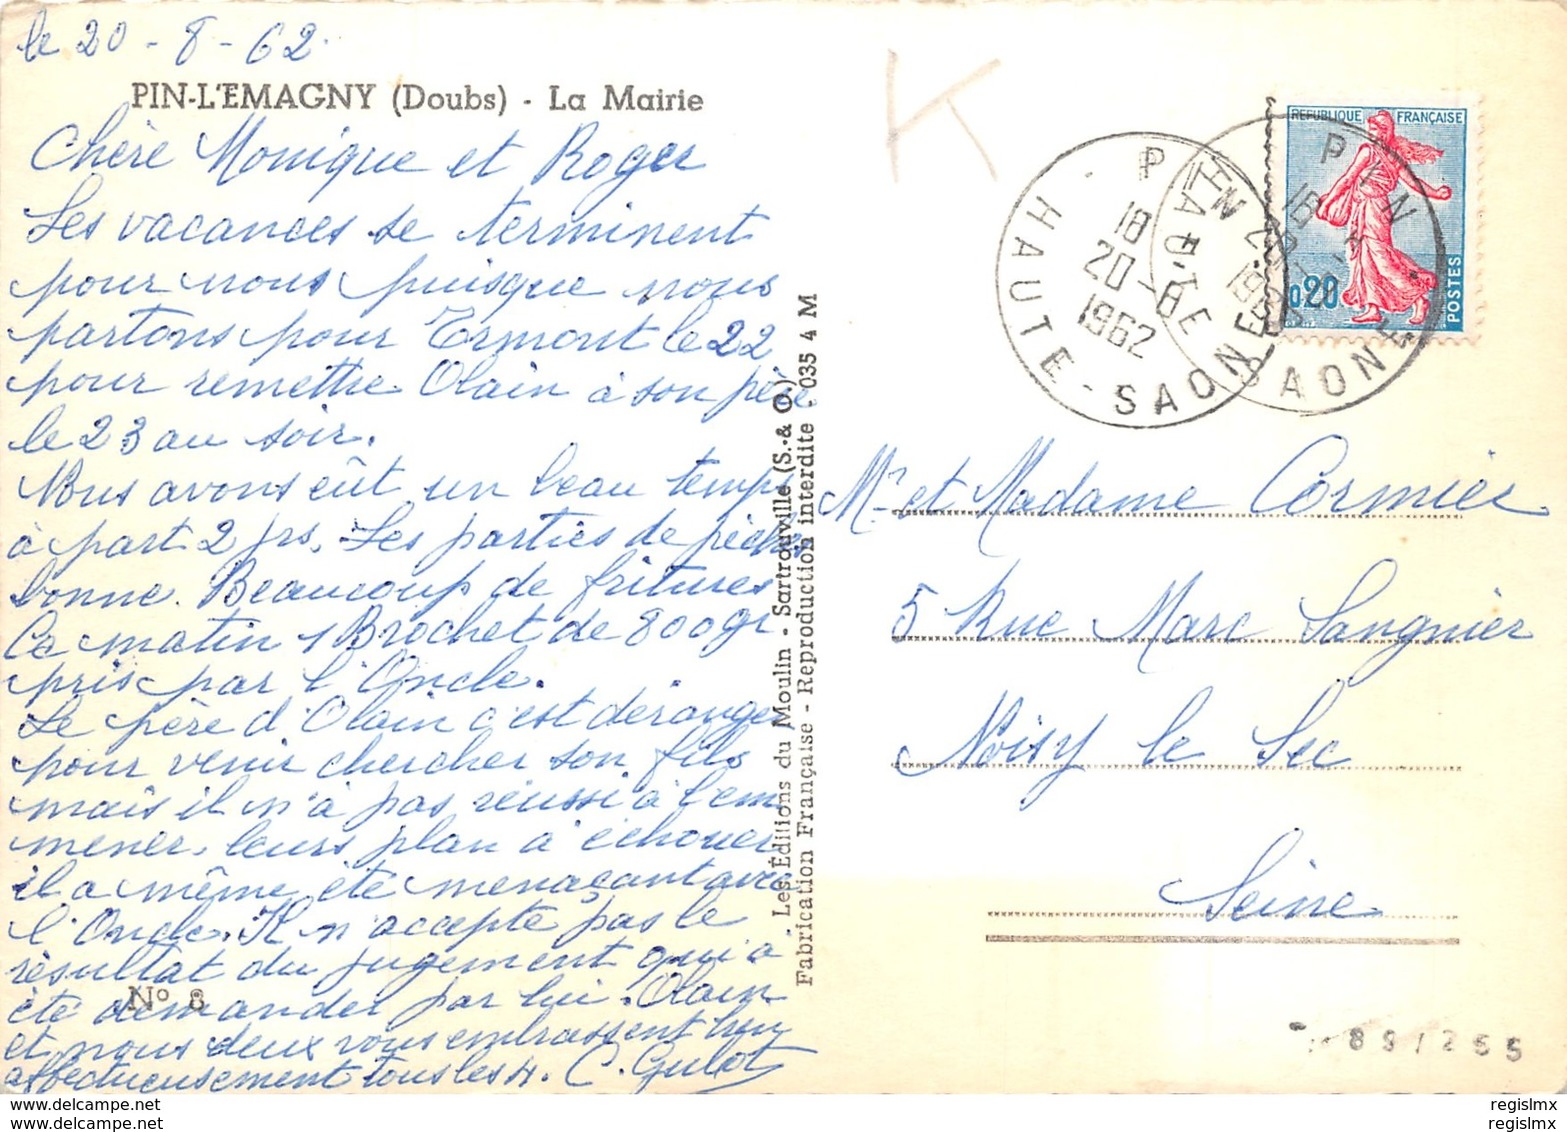 le 20-8-62.
PIN-L'EMAGNY (Doubs) - La Mairie
Chère Monique et Roger
Les vacances se terminent
pour nous puisque nous
partons pour Ermont le 22
pour remettre Olain à son père
le 23 au soir.
Nous avons eût un beau temps
à part 2 jrs. Les parties de pêche
bonne. Beaucoup de fritures
Ce matin 1 Brochet de 800 gr
pris par l'Oncle.
Le père d'Olain c'est déranger
pour venir chercher son fils
mais il n'à pas réussi à l'em
mener. leurs plan à échouer
il a même été menaçant avec
l'Oncle. Il n'accepte pas le
résultat du jugement qui a
été demander par lui. Olain
et nous deux vous embrassent bien
affectueusement tous les 4. C. Gulot
No 8
Les Éditions du Moulin - Sartrouville (S.-& O.)
Fabrication Française - Reproduction interdite - 035 4 M
K
REPUBLIQUE FRANÇAISE
0,20
POSTES
PIN
18
20-8
1962
HAUTE-SAONE
PIN
18
20-8
1962
HAUTE-SAONE
Mr et Madame Cormier
5 Rue Marc Sangnier
Noisy le Sec
Seine
891255
regislmx
regislmx
regislmx
regislmx